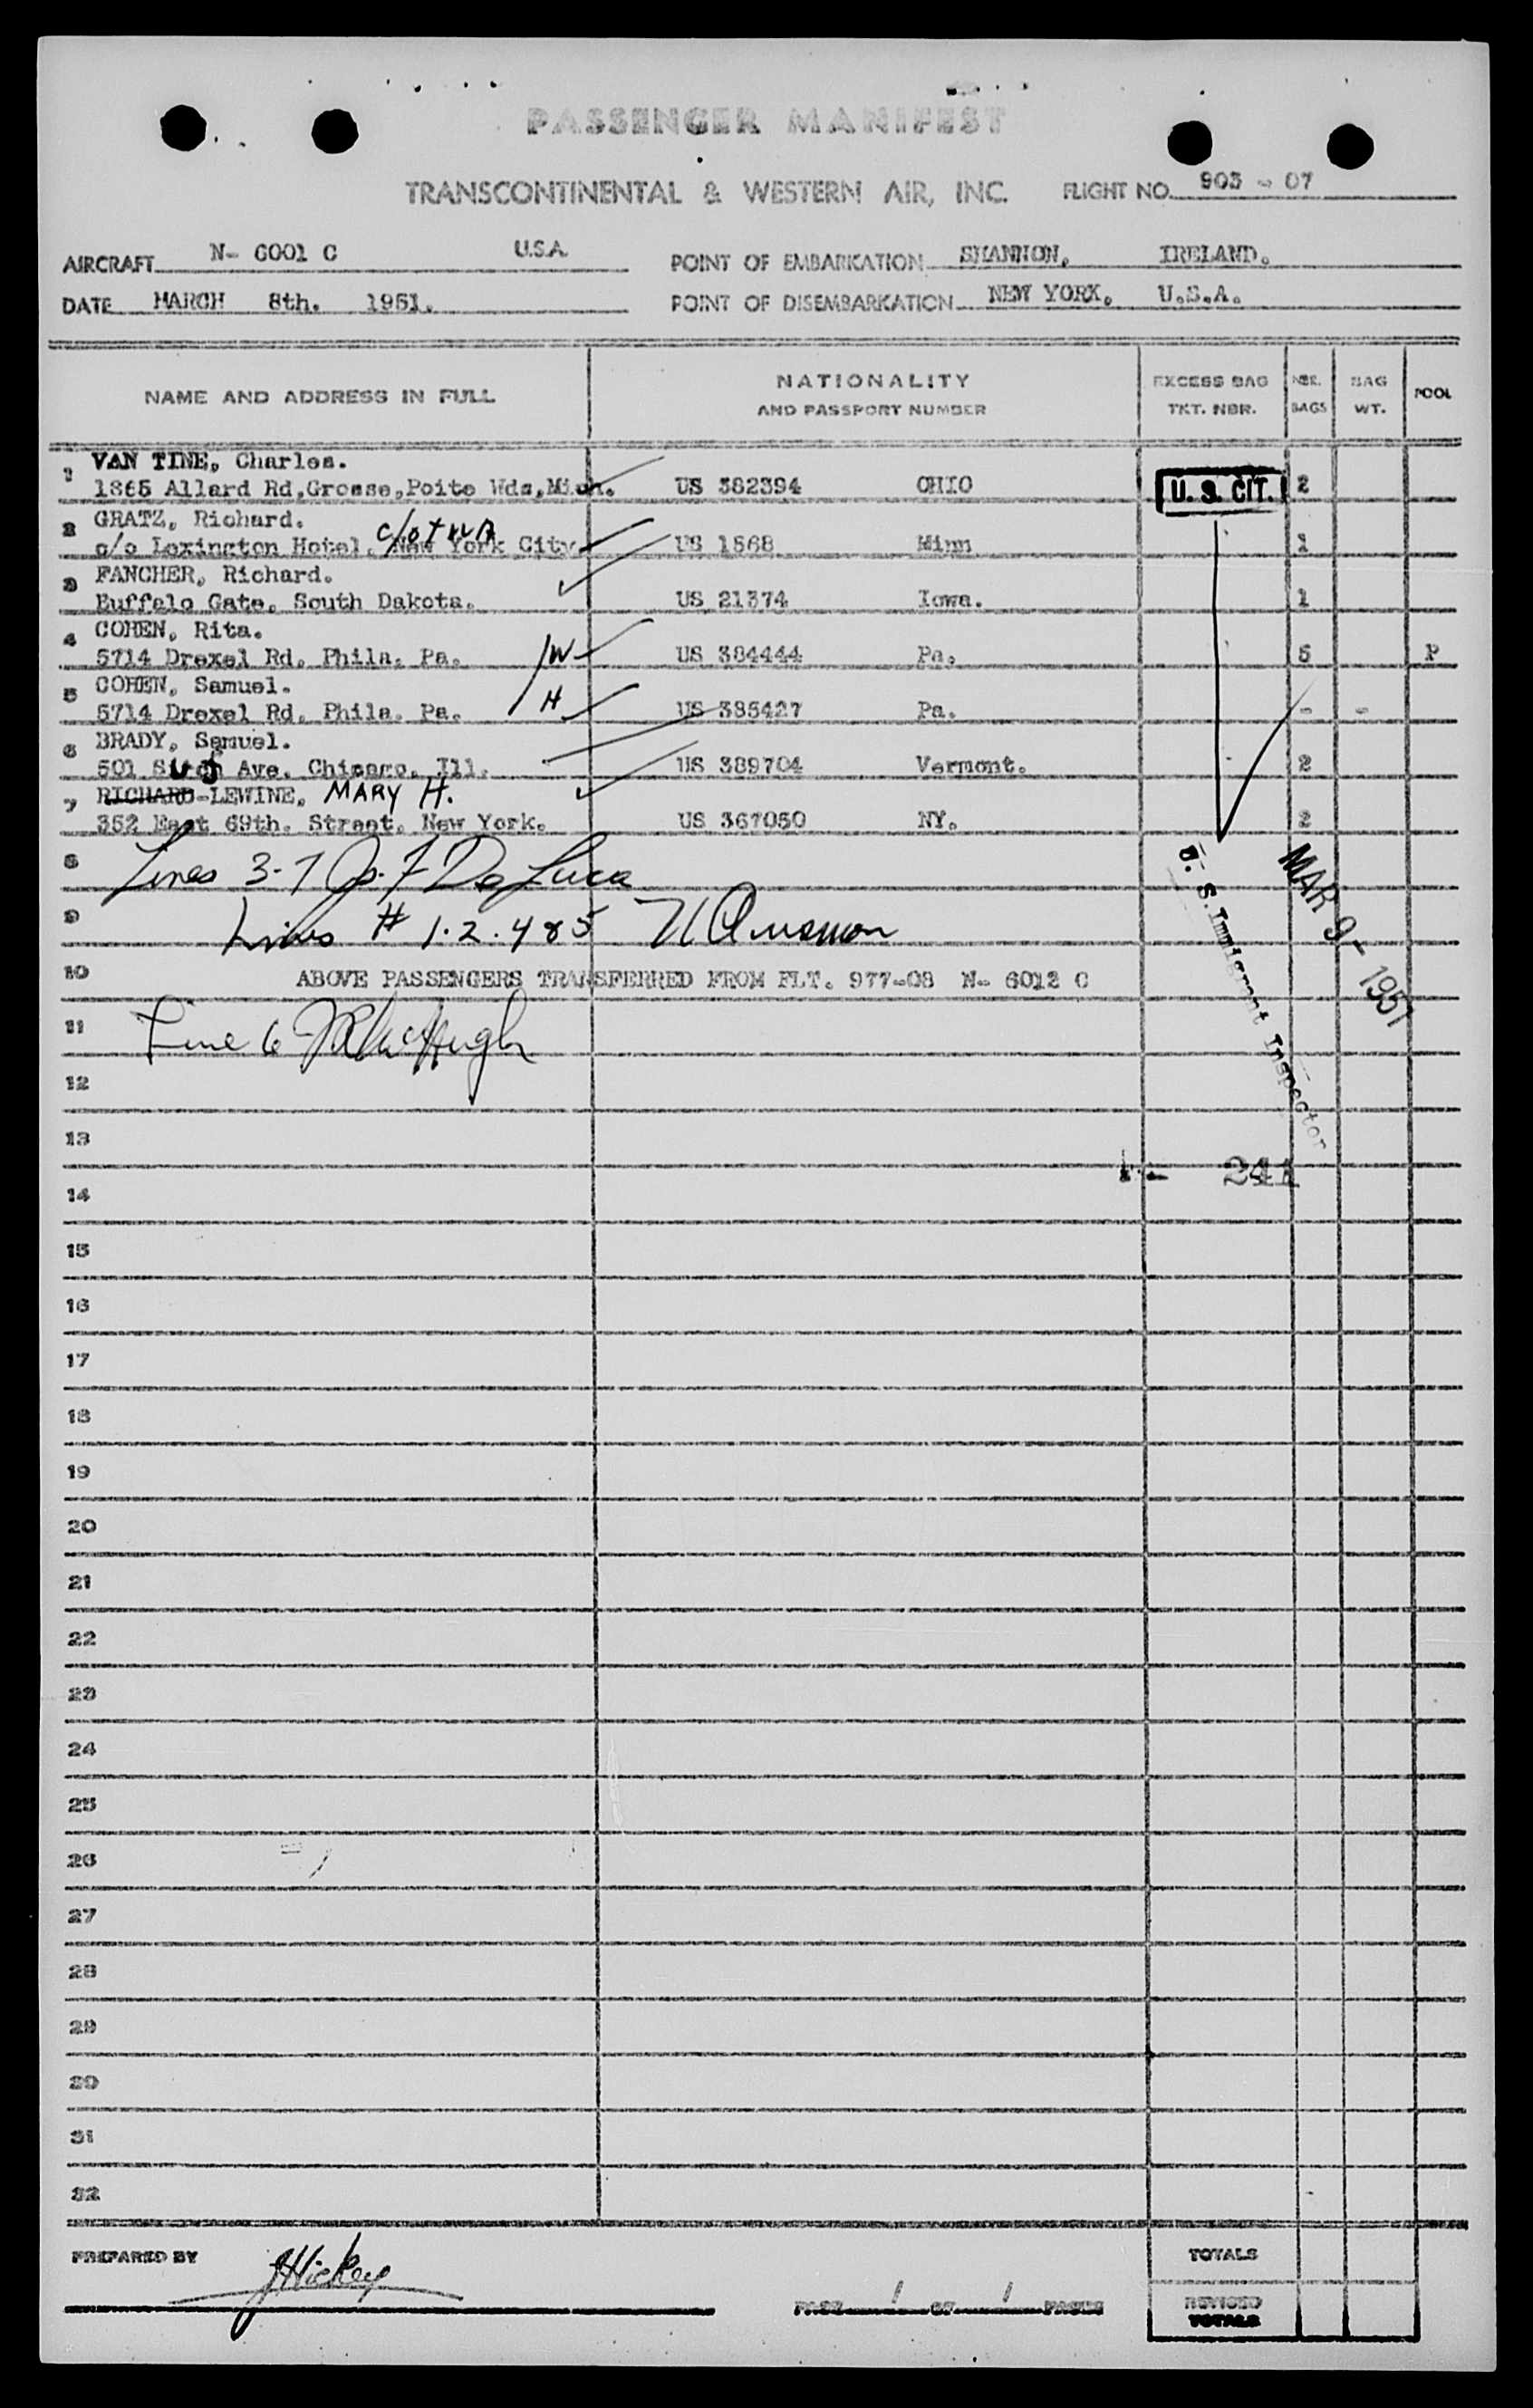 PASSENGER MANIFEST
TRANSCONTINENTAL & WESTERN AIR, INC. FLIGHT NO. 903 - 07
AIRCRAFT N- 6001 C U.S.A. POINT OF EMBARKATION SHANNON, IRELAND.
DATE MARCH 8th. 1951. POINT OF DISEMBARKATION NEW YORK, U.S.A.
NAME AND ADDRESS IN FULL NATIONALITY AND PASSPORT NUMBER EXCESS BAG TKT. NBR. NBR. BAGS BAG WT. POOL
1 VAN TINE, Charles.
1865 Allard Rd,Grosse,Poite Wds,Mich. US 382394 OHIO U. S. CIT. 2
2 GRATZ, Richard.
c/o Lexington Hotel, New York City. c/o TWA US 1568 Minn 1
3 FANCHER, Richard.
Buffalo Gate, South Dakota. US 21374 Iowa. 1
4 COHEN, Rita.
5714 Drexel Rd. Phila. Pa. W US 384444 Pa. 5 P
5 COHEN, Samuel.
5714 Drexel Rd. Phila. Pa. H US 385427 Pa. - -
6 BRADY, Samuel.
501 Ave. Chicago. Ill. US 389704 Vermont. 2
7 RICHARD-LEWINE, MARY H.
352 East 69th. Street. New York. US 367050 NY. 2
8 Lines 3-7 Jo. F De Luca
9 Lines # 1.2.4 & 5
U. S. Immigrant Inspector
MAR 9- 1951
10 ABOVE PASSENGERS TRANSFERRED FROM FLT. 977-08 N- 6012 C
11 Line 6 McHugh
12
13
241
14
15
16
17
18
19
20
21
22
23
24
25
26
27
28
29
30
31
32
PREPARED BY JHickey
PAGE 1 OF 1 PAGES
TOTALS
REVISED TOTALS